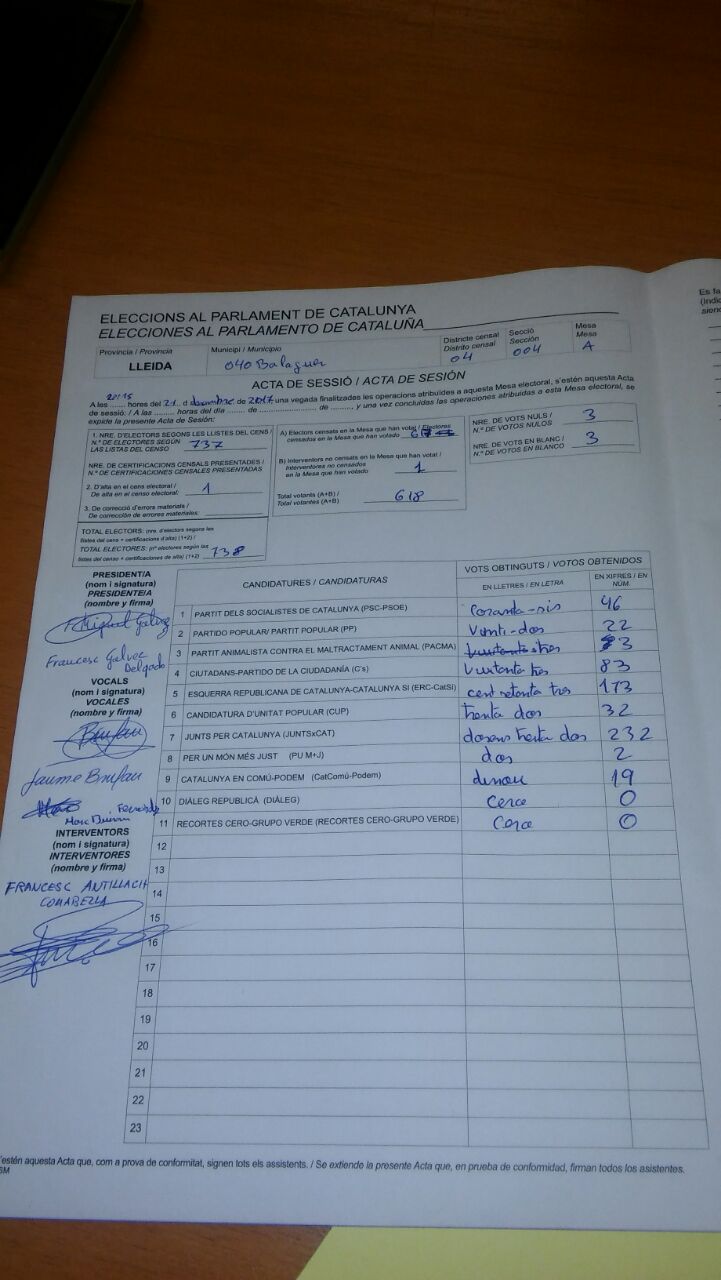 ELECCIONS AL PARLAMENT DE CATALUNYA
ELECCIONES AL PARLAMENTO DE CATALUÑA
Província / Provincia
LLEIDA
Municipi / Municipio
040 Balaguer
Districte censal
Distrito censal
04
Secció
Sección
004
Mesa
Mesa
A
ACTA DE SESSIÓ / ACTA DE SESIÓN
20:15
A les ........ hores del 21. d desembre de 2017 una vegada finalitzades les operacions atribuïdes a aquesta Mesa electoral, s'estén aquesta Acta
de sessió: / A las ........ horas del día ........ de ........................ de ........, y una vez concluidas las operaciones atribuidas a esta Mesa electoral, se
expide la presente Acta de Sesión:
1. NRE. D'ELECTORS SEGONS LES LLISTES DEL CENS /
N.º DE ELECTORES SEGÚN
LAS LISTAS DEL CENSO
737
NRE. DE CERTIFICACIONS CENSALS PRESENTADES /
N.º DE CERTIFICACIONES CENSALES PRESENTADAS
2. D'alta en el cens electoral:
De alta en el censo electoral:
1
3. De correcció d'errors materials /
De corrección de errores materiales:
TOTAL ELECTORS: (nre. d'electors segons les
llistes del cens + certificacions d'alta) (1+2) /
TOTAL ELECTORES: (nº electores según las
listas del censo + certificaciones de alta) (1+2)
738
A) Electors censats en la Mesa que han votat / Electores
censados en la Mesa que han votado
617
B) Interventors no censats en la Mesa que han votat /
Interventores no censados
en la Mesa que han votado
1
Total votants (A+B) /
Total votantes (A+B)
618
NRE. DE VOTS NULS /
N.º DE VOTOS NULOS
3
NRE. DE VOTS EN BLANC /
N.º DE VOTOS EN BLANCO
3
Es fa
(indic
siend
PRESIDENT/A
(nom i signatura)
PRESIDENTE/A
(nombre y firma)
Miguel Galvez
Francesc Galvez
Delgado
VOCALS
(nom i signatura)
VOCALES
(nombre y firma)
Brufau
Jaume Brufau
INTERVENTORS
(nom i signatura)
INTERVENTORES
(nombre y firma)
FRANCESC ANTILLACH
COMABELLA
CANDIDATURES / CANDIDATURAS
VOTS OBTINGUTS / VOTOS OBTENIDOS
EN LLETRES / EN LETRA
EN XIFRES / EN NÚM.
1 PARTIT DELS SOCIALISTES DE CATALUNYA (PSC-PSOE) coranta-sis 46
2 PARTIDO POPULAR/ PARTIT POPULAR (PP) Vint-i-dos 22
3 PARTIT ANIMALISTA CONTRA EL MALTRACTAMENT ANIMAL (PACMA) tres 3
4 CIUTADANS-PARTIDO DE LA CIUDADANÍA (C's) Vuitanta tres 83
5 ESQUERRA REPUBLICANA DE CATALUNYA-CATALUNYA SÍ (ERC-CatSí) cent setanta tres 173
6 CANDIDATURA D'UNITAT POPULAR (CUP) trenta dos 32
7 JUNTS PER CATALUNYA (JUNTSxCAT) dosens trenta dos 232
8 PER UN MÓN MÉS JUST (PU M+J) dos 2
9 CATALUNYA EN COMÚ-PODEM (CatComú-Podem) dinou 19
10 DIÀLEG REPUBLICÀ (DIÀLEG) Cero 0
11 RECORTES CERO-GRUPO VERDE (RECORTES CERO-GRUPO VERDE) Cero 0
12
13
14
15
16
17
18
19
20
21
22
23
'estén aquesta Acta que, com a prova de conformitat, signen tots els assistents. / Se extiende la presente Acta que, en prueba de conformidad, firman todos los asistentes.